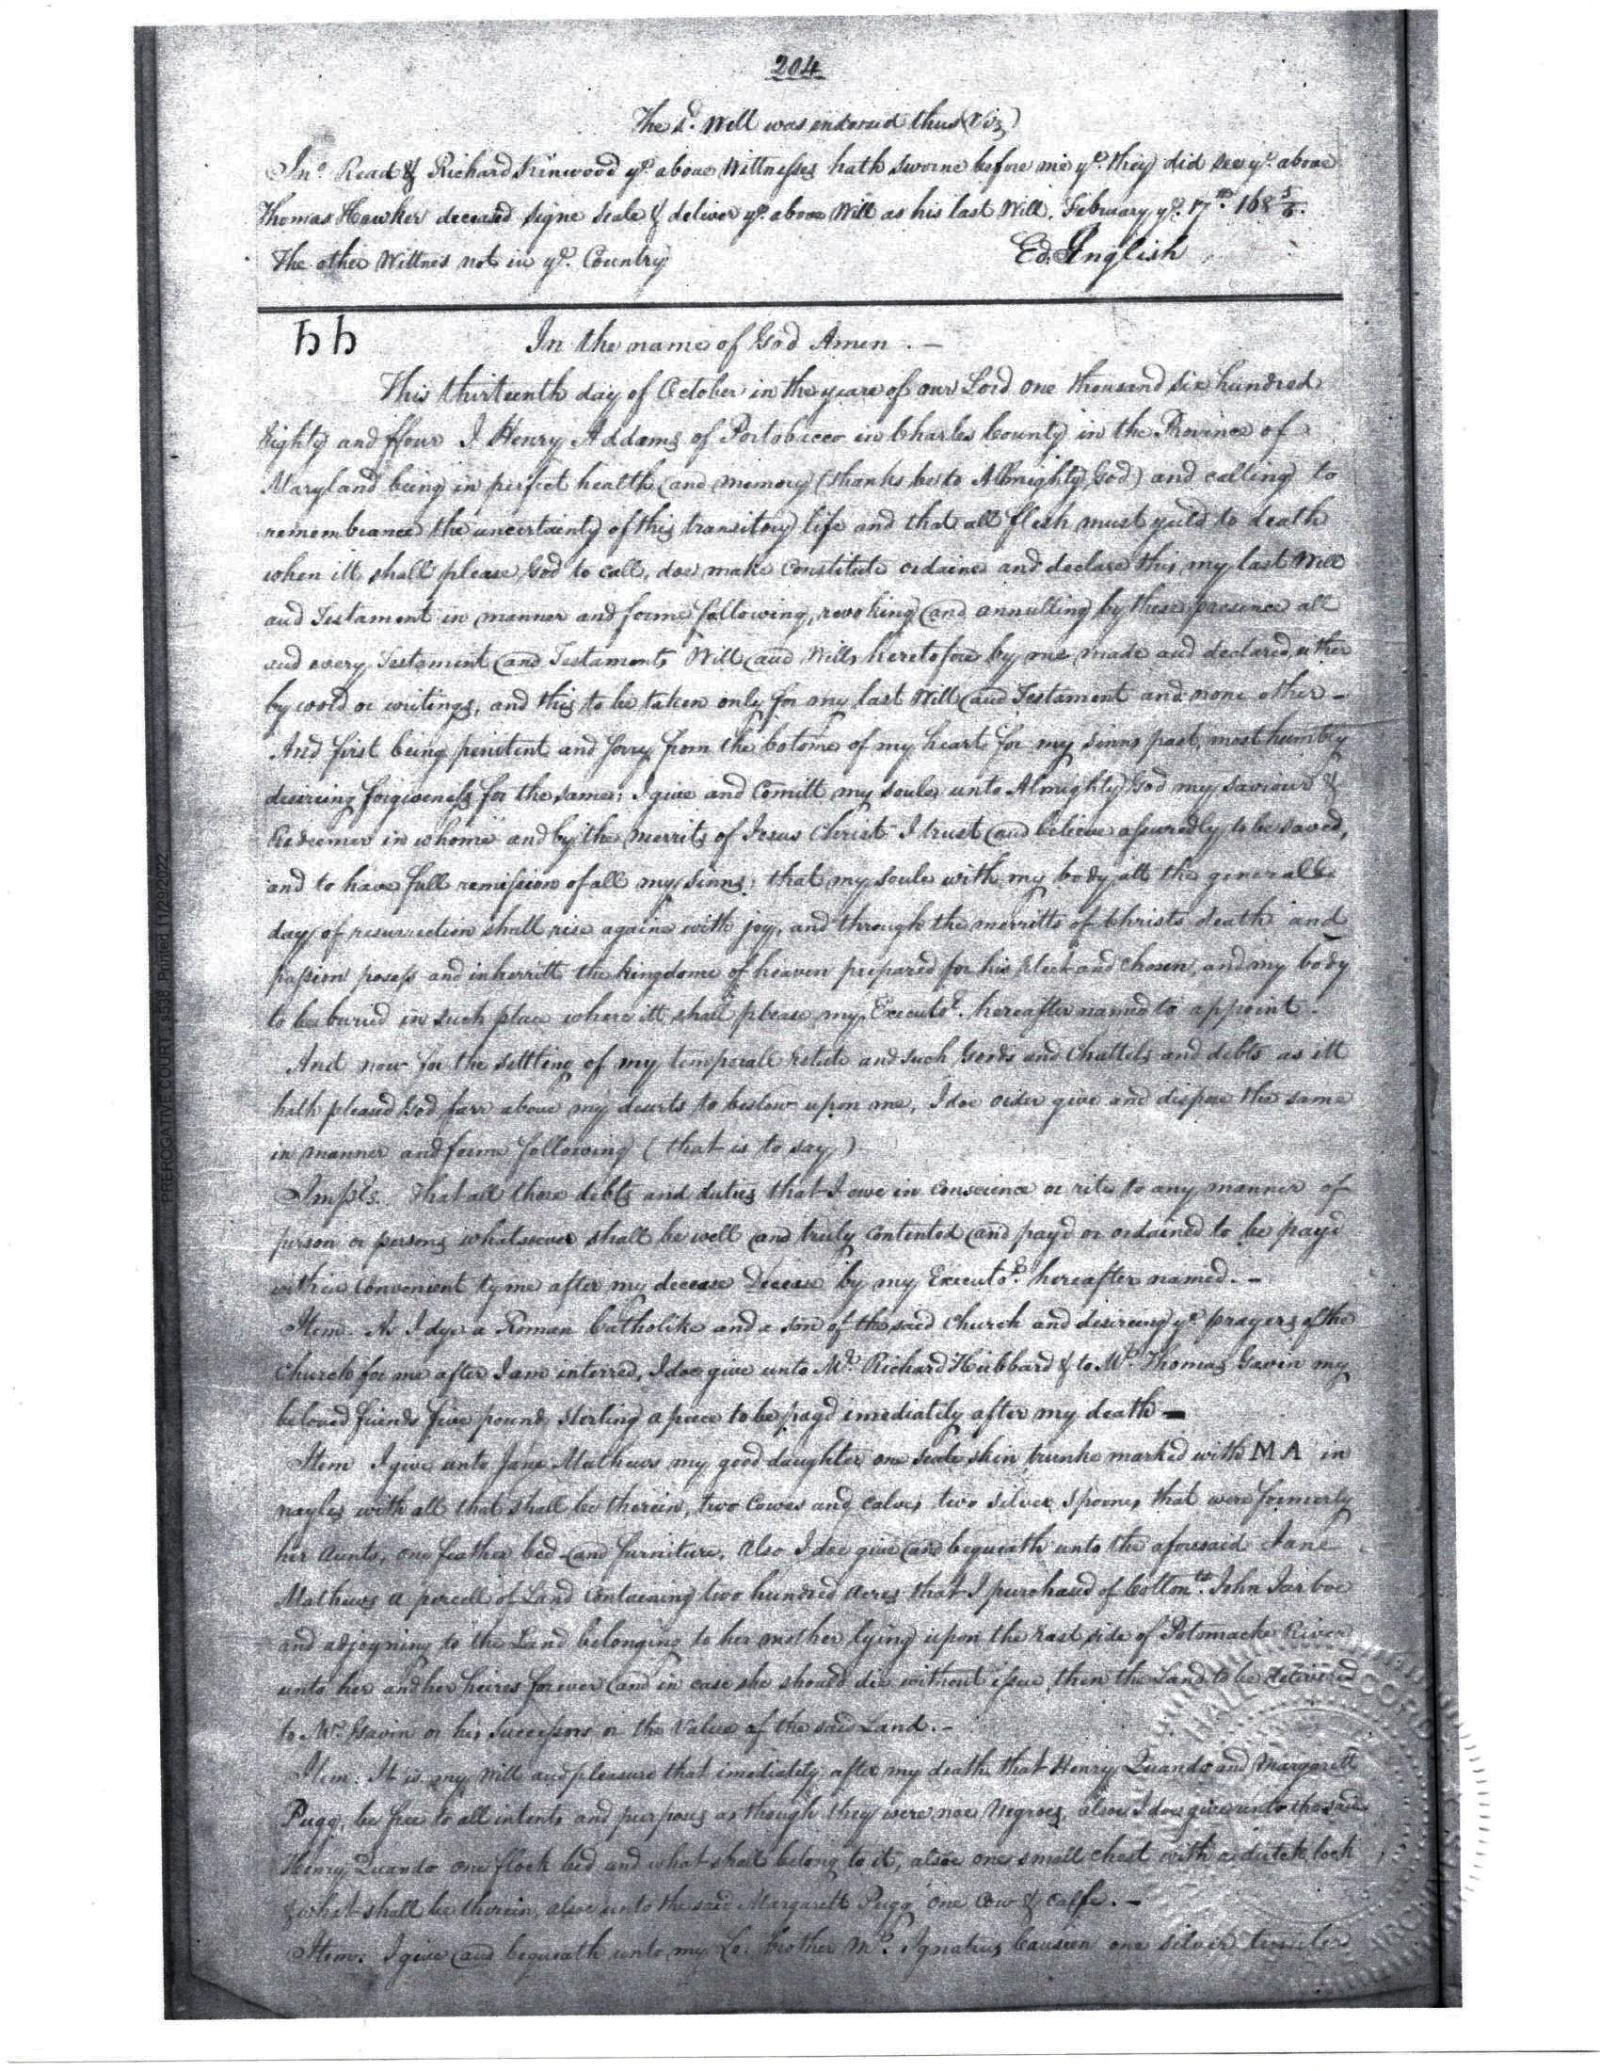 204
The sd. Will was endorsed thus (Viz)
Jno. Read & Richard Kinwood ye. above Wittnesses hath sworne before me yt. they did see ye. above
Thomas Hawker deceased signe seale & deliver ye. above Will as his last Will. February ye. 17th. 168 5/6.
The other Wittnes not in ye. Country
Ed. English
hh In the name of God Amen. —
This thirteenth day of October in the yeare of our Lord one thousand six hundred
Eighty and ffour I Henry Addams of Portobacco in Charles County in the Province of
Maryland being in perfect health and memory (thanks be to Allmighty God) and calling to
remembrance the uncertainty of this transitory life and that all flesh must yeild to death
when itt shall please God to call, doe make Constitute ordaine and declare this my last Will
and Testament in manner and forme following, revoking and annulling by these presence all
and every Testament and Testaments Will and Wills heretofore by me made and declared, either
by word or writings, and this to be taken only for my last Will and Testament and none other —
And first being penitent and sorry from the botome of my heart for my sinns past, most humbly
desireing forgiveness for the same; I give and Comitt my soule unto Almighty God my saviour &
Redeemer in whome and by the merrits of Jesus Christ I trust and believe assuredly to be saved,
and to have full remission of all my sinns: that my soule with my body att the generall
day of resurrection shall rise againe with joy, and through the merritts of Christs death and
passion posess and inherritt the kingdome of heaven prepared for his Elect and chosen, and my body
to be buried in such place where itt shall please my Executor. hereafter named to appoint.
And now for the settling of my temperall Estate and such Goods and Chattels and debts as itt
hath pleased God farr above my deserts to bestow upon me, I doe order give and dispose the same
in manner and forme following (that is to say)
Impts. That all those debts and duties that I owe in conscience or rite to any manner of
person or persons whatsoever shall be well and truly contented and pay'd or ordained to be pay'd
within Convenient tyme after my decease Decease by my Executors. hereafter named. —
Item. As I dye a Roman Catholike and a son of the said Church and desireing ye prayers of the
Church for me after I am interred, I doe give unto Mr. Richard Hubbard & to Mr. Thomas Gavin my
beloved friends five pounds sterling a peece to be payd imediatly after my death —
Item I give unto Jane Mathews my good daughter one seale skin trunke marked with M A in
nayles with all that shall be therein, two Cowes and calves, two silver spoones that were formerly
her Aunts, one feather bed and furniture, Also I doe give and bequeath unto the aforesaid Jane
Mathews a parcell of Land Containeing two hundred acres that I purchased of Collonll. John Jarboe
and adjoyning to the Land belonging to her mother lying upon the East side of Potomacke River
unto her and her heires forever and in case she should die without issue, then the Land to be delivered
to Mr Gavin or his Successors or the Value of the said Land. —
Item. It is my Will and pleasure that imediately after my death that Henry Quando and Margarett
Pugg, be free to all intents and purposes as though they were noe Negroes, alsoe I doe give unto the said
Henry Quando one flock bed and what shall belong to it, alsoe one small chest with a dutch lock
& what shall be therein, alsoe unto the said Margarett Pugg one Cow & Calfe. —
Item. I give and bequeath unto my Lo: brother Mr. Ignatius Causeen one silver
PREROGATIVE COURT, s538. Printed 11/29/2022
HALL OF RECORDS
ARCHIVES